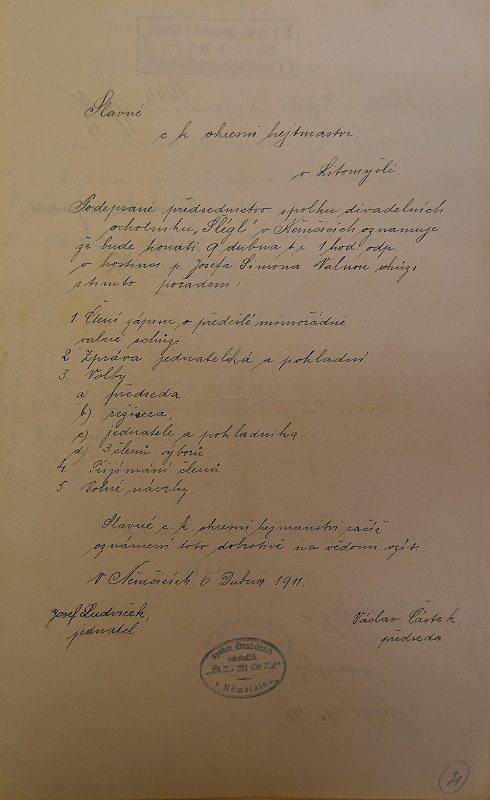 Slavné
c. k. okresní hejtmastvi
v Litomyšli.
Podepsané předsednictvo spolku divadelních
ochotníku „Šlégl" v Němčicích oznamuje
že bude konati 9 dubna t. r. 1 hod. odp.
v hostinci p. Josefa Šimona Valnou schůzi
s tímto pořadem:
1. Čtení zápisu o předešlé mimořádné
valné schůzi
2. Zpráva jednatelská a pokladní
3. Volby
a) předseda
b) režisera,
c) jednatele a pokladníka
d) 3 členů výborů
4 Přijímání členů
5 Volné návrhy
Slavné c. k. okresní hejmanství račiž
oznámení toto dobrotivě na vědomí vzíti.
V Němčicích 6 Dubna 1911.
Josef Ludvíček,
jednatel
Václav Částek,
předseda
Spolek divadelních
ochotníků
„ŠLÉGL"
v Němčicích
21